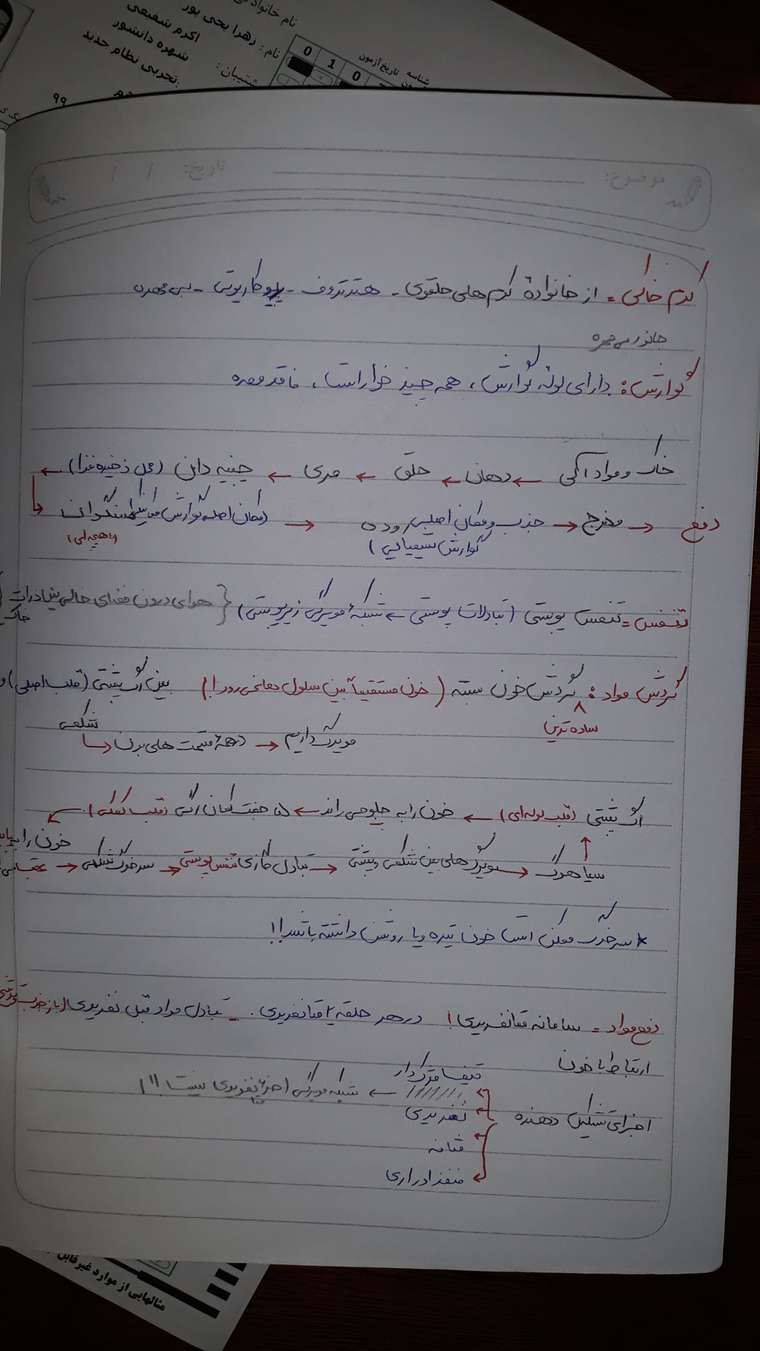 نام خانوادگی
نام: زهرا یحی پور
اکرم شفیعی
شهره دانشور
پشتیبان:
تجربی نظام جدید
شناسه تاریخ آزمون
0 1 0
99
موضوع:
تاریخ: / /
کرم خاکی = از خانوادهٔ کرم های حلقوی - هتروتروف - یوکاریوتی - بی مهره
جانور بی مهره
گوارش: دارای لوله گوارش، همه چیز خوار است، فاقد معده
خاک و مواد آلی ← دهان ← حلق ← مری ← چینه دان (محل ذخیره غذا) ←
سنگدان (مکان اصلی گوارش) → روده (جذب و مکان اصلی گوارش شیمیایی) → مخرج → دفع
(ماهیچه ای)
تنفس = تنفس پوستی (تبادلات پوستی ← شبکهٔ مویرگی زیرپوستی) { هوای درون فضای خالی بین ذرات خاک
گردش مواد: گردش خون بسته (خون مستقیماً بین سلول ها نمی رود!) بین رگ پشتی (قلب اصلی) و
ساده ترین
شکمی
مویرگ داریم → همهٔ قسمت های بدن
رگ پشتی (قلب لوله ای) ← خون را به جلو می راند ← ۵ جفت کمان رگی (قلب کمکی)
سیاهرگ ← مویرگ های بین شکمی و پشتی → تبادل گازی تنفس پوستی → سرخرگ شکمی → خون را به
* سرخرگ ممکن است خون تیره و یا روشن داشته باشد!!
دفع مواد = سامانه متانفریدی! در هر حلقه ۲ متانفریدی. = تبادل مواد قبل نفریدی
ارتباط با خون
اجزای تشکیل دهنده
قیف مژک دار
← شبکه مویرگی (جزء متانفریدی نیست!!)
نفریدی
مثانه
منفذ ادراری
مثالهایی از موارد غیرقابل